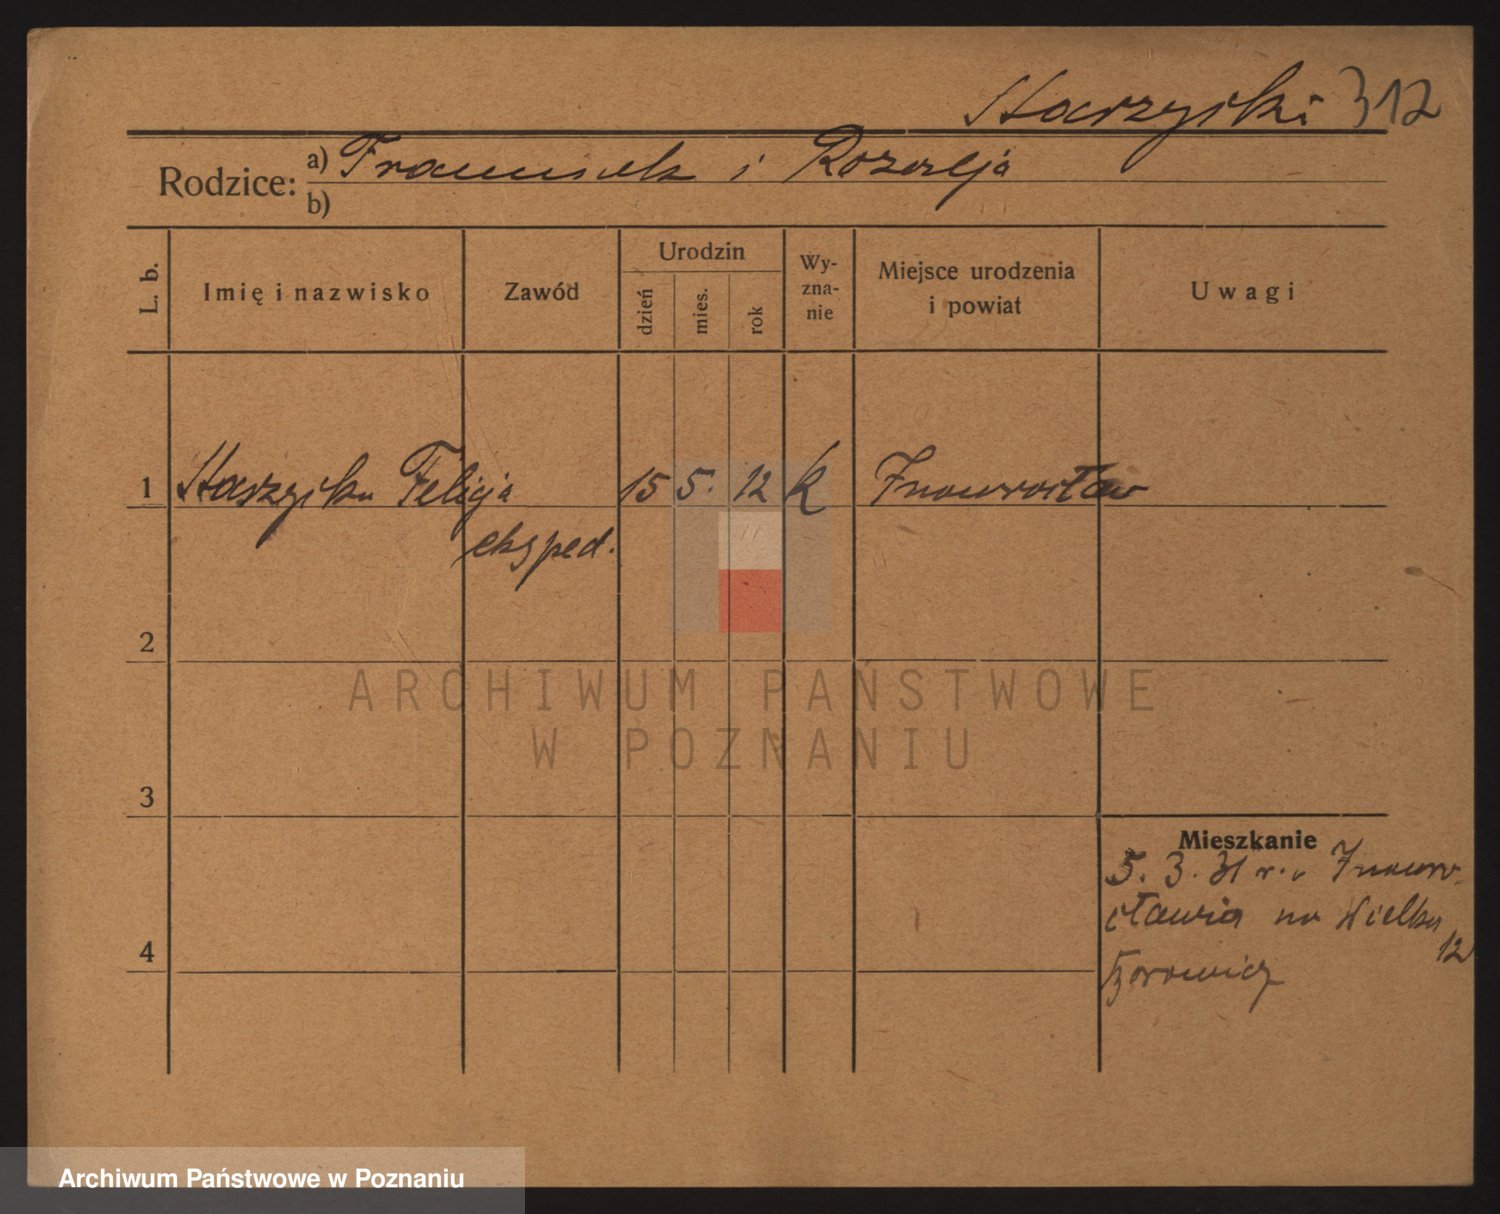 Starzyski 312
Rodzice: a) Franciszek i Rozalja
b)
L. b.
Imię i nazwisko
Zawód
Urodzin
dzień
mies.
rok
Wy-
zna-
nie
Miejsce urodzenia
i powiat
Uwagi
1 Starzyska Felicja 15 5. 12 k Inowrocław
eksped.
2
3
4
Mieszkanie
5. 3. 31 r. Inowro-
cławia na Wielka
12
ARCHIWUM PAŃSTWOWE
W POZNANIU
Archiwum Państwowe w Poznaniu